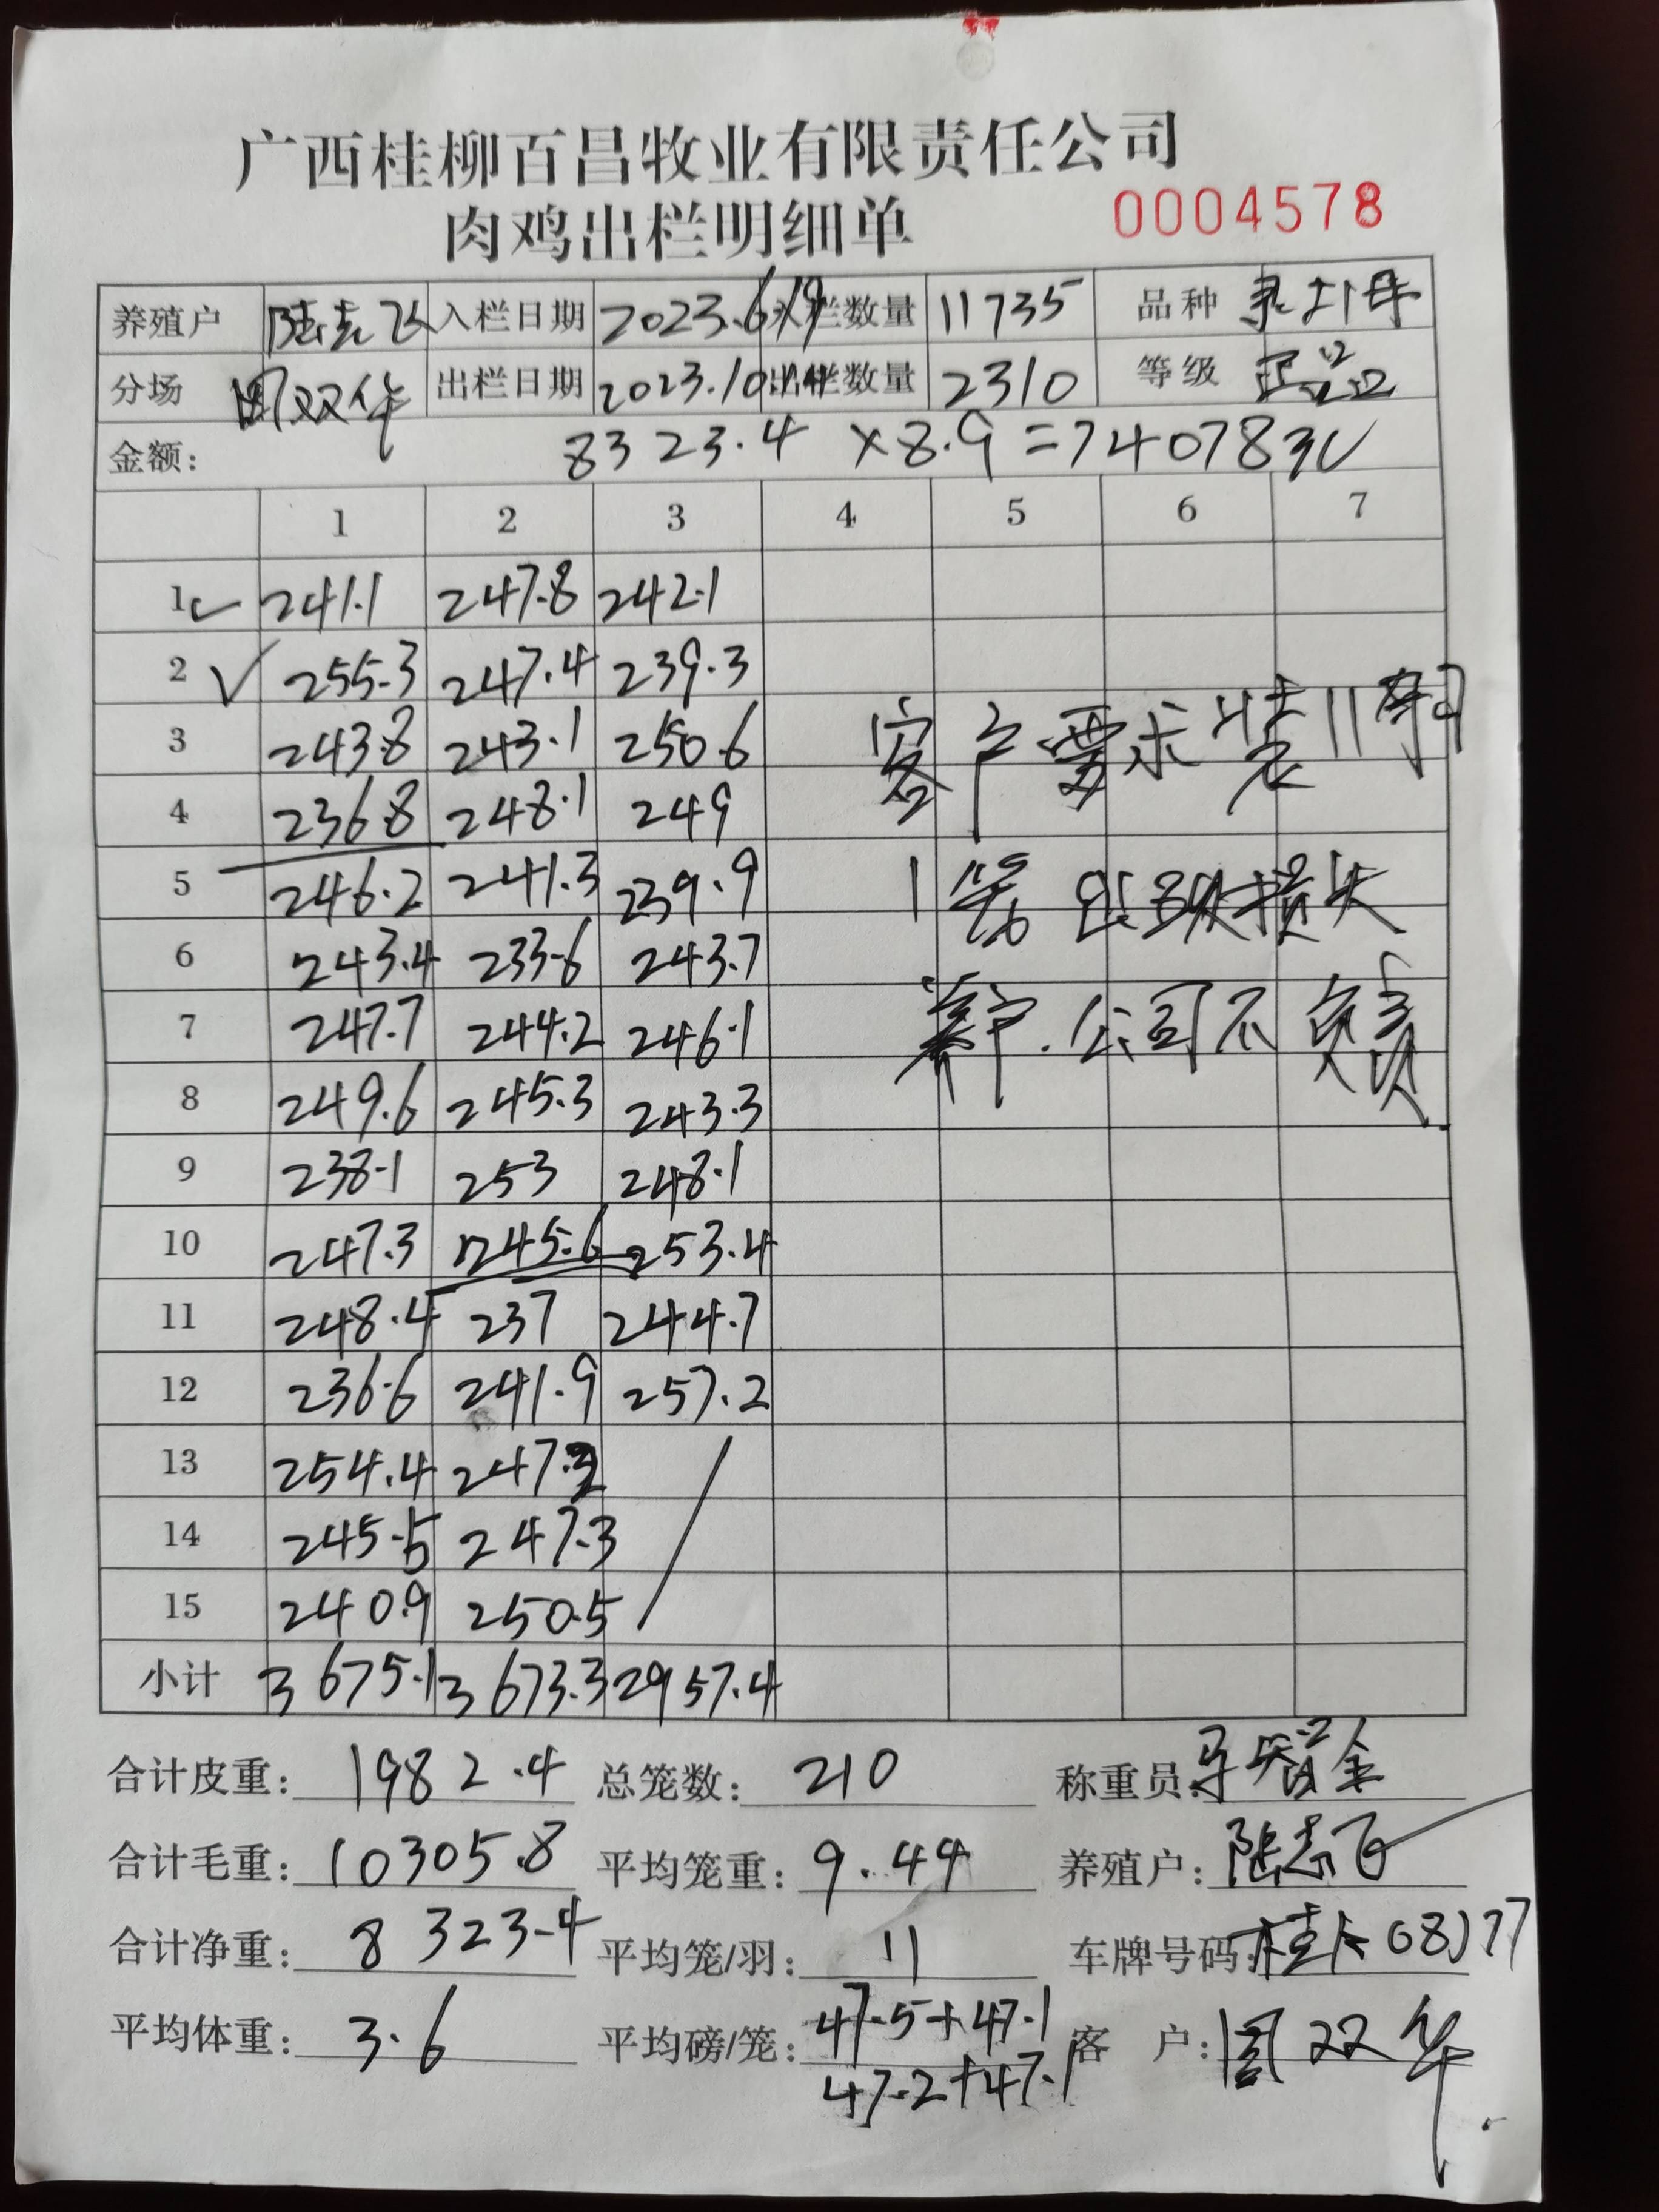 广西桂柳百昌牧业有限责任公司
肉鸡出栏明细单 0004578
养殖户 陆志飞 入栏日期 2023.6.19 入栏数量 11735 品种
分场 周双华 出栏日期 2023.10.14 出栏数量 2310 等级 正品
金额: 8323.4 ×8.9=74078元
1 2 3 4 5 6 7
1 241.1 247.8 242.1
2 255.3 247.4 239.3
3 243.8 243.1 250.6
4 236.8 248.1 249
客户要求装11羽
5 246.2 241.3 239.9
1笼 造成损失
6 243.4 233.6 243.7
7 247.7 244.2 246.1
养户.公司不负责
8 249.6 245.3 243.3
9 238.1 253 248.1
10 247.3 245.6 253.4
11 248.4 237 244.7
12 236.6 241.9 257.2
13 254.4 247.2
14 245.5 247.3
15 240.9 250.5
小计 3675.1 3673.3 2957.4
合计皮重: 1982.4 总笼数: 210 称重员:
合计毛重: 10305.8 平均笼重: 9.44 养殖户: 陆志飞
合计净重: 8323.4 平均笼/羽: 11 车牌号码:
平均体重: 3.6 平均磅/笼: 47.5+47.1 客 户: 周双华
47.2+47.1